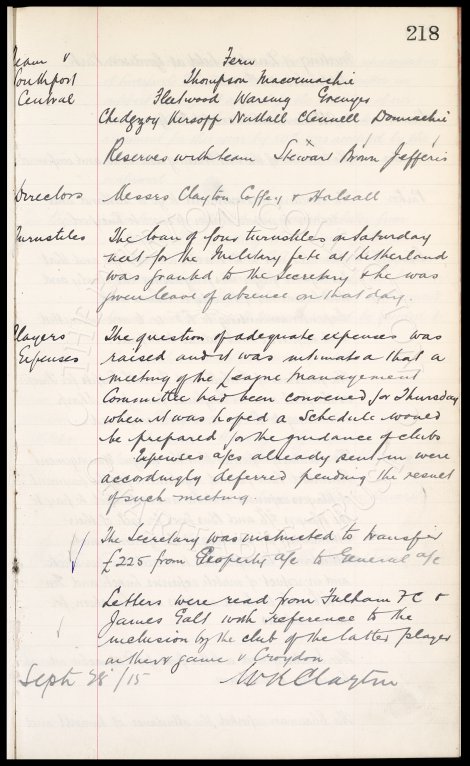 218
Team v Fern
Southport Thompson Maconnachie
Central Fleetwood Wareing Grenyer
Chedgzoy Kirsopp Nuttall Clennell Donnachie
Reserves with team Stewart Brown Jefferis
Directors Messrs Clayton Coffey & Halsall
Turnstiles The loan of four turnstiles on Saturday
next for the Military fete at Litherland
was granted to the Secretary & he was
given leave of absence on that day.
Players The question of adequate expenses was
Expenses raised and it was intimated that a
meeting of the League Management
Committee had been convened for Thursday
when it was hoped a Schedule would
be prepared for the guidance of clubs
Expenses a/cs already sent in were
accordingly deferred pending the result
of such meeting
The Secretary was instructed to transfer
£225 from Property a/c to General a/c
Letters were read from Fulham FC &
James Galt with reference to the
inclusion by the club of the latter player
in their game v Croydon
Sept 28/15 W R Clayton